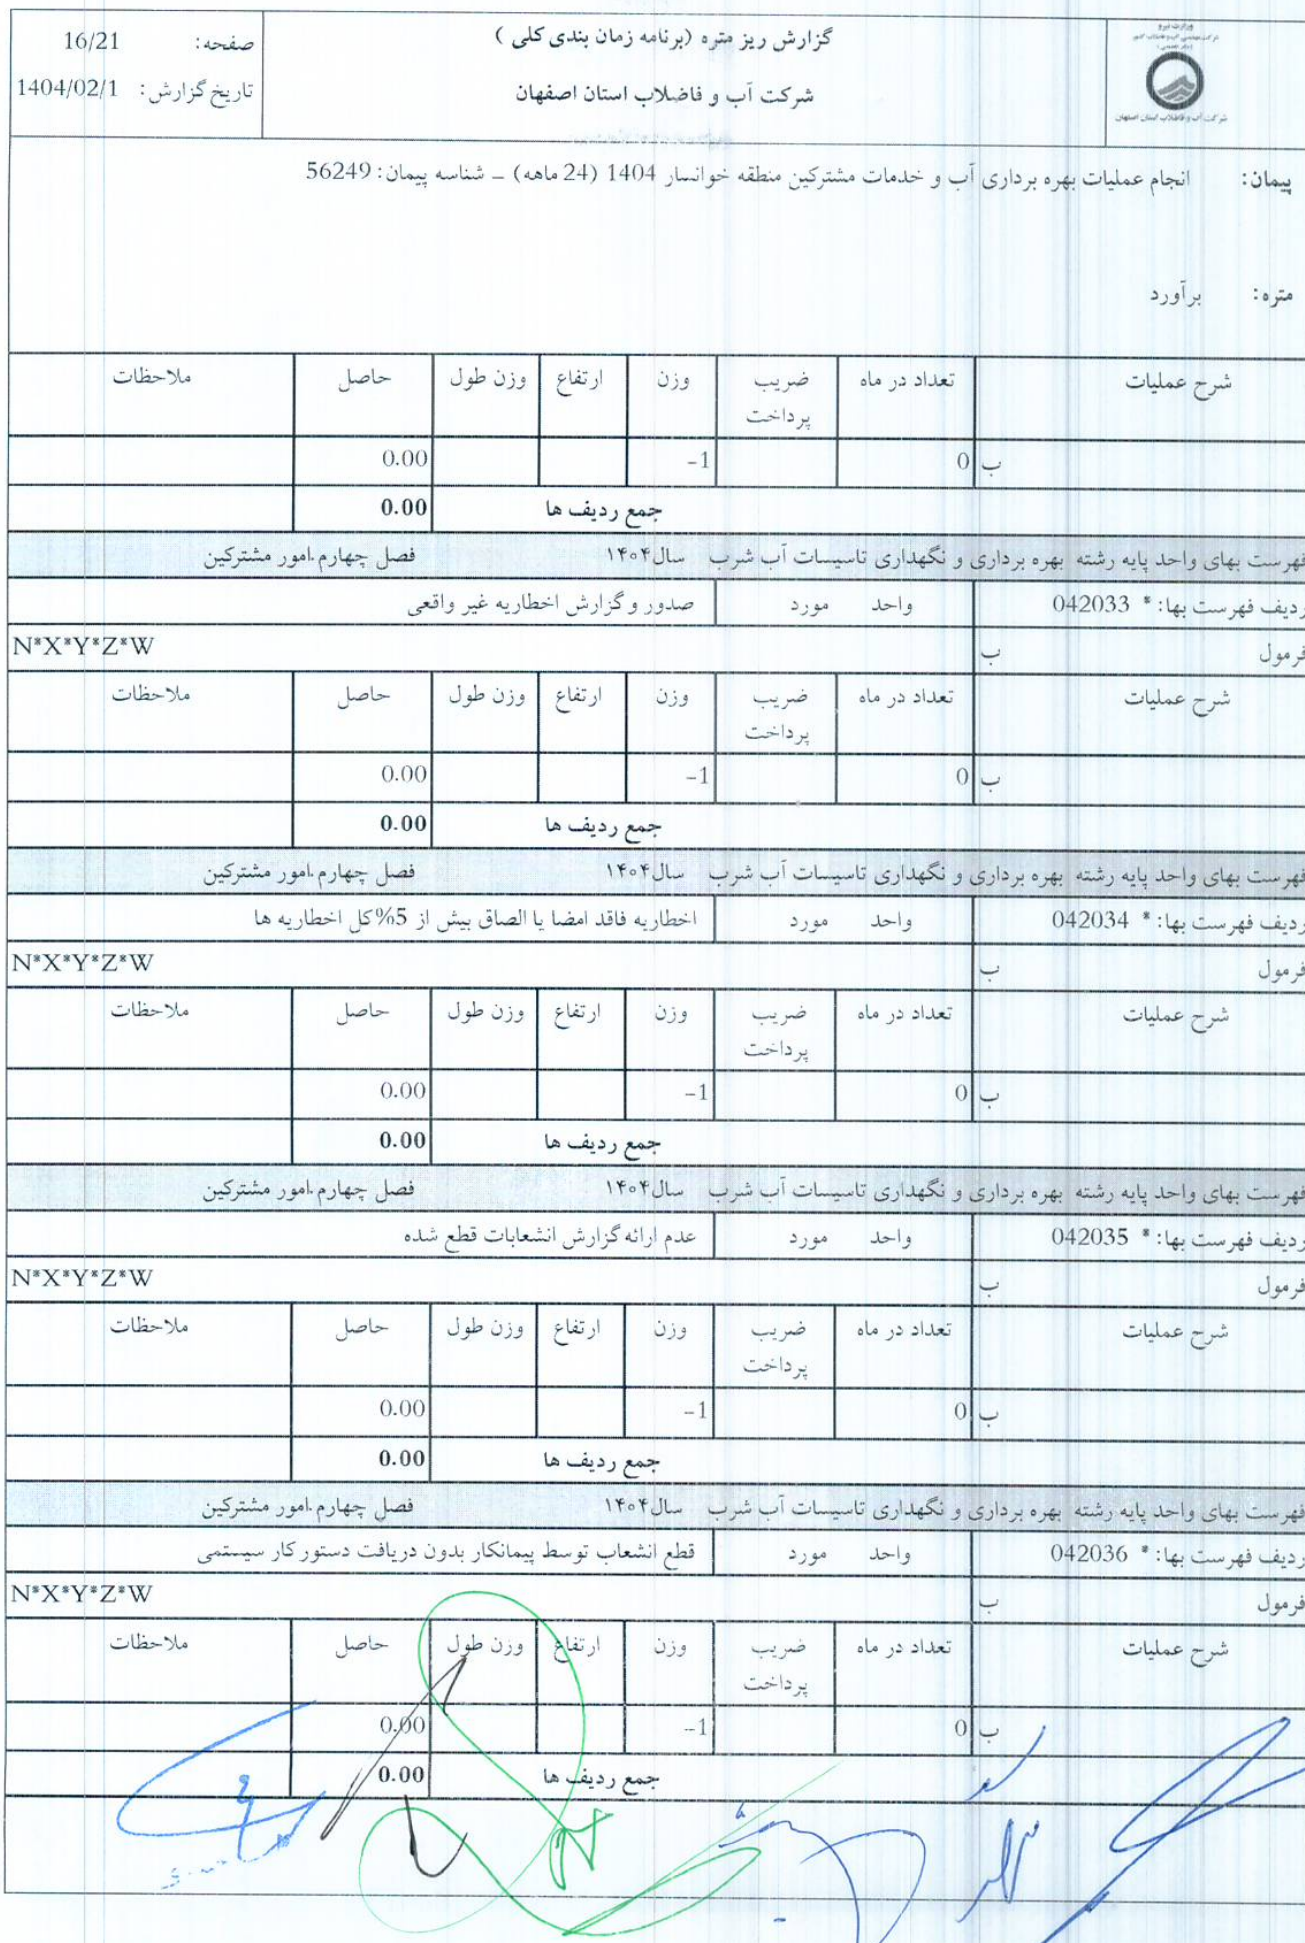 گزارش ریز متره (برنامه زمان بندی کلی )
شرکت آب و فاضلاب استان اصفهان
صفحه: 16/21
تاریخ گزارش: 1404/02/1
وزارت نیرو
شرکت آب و فاضلاب استان اصفهان
پیمان: انجام عملیات بهره برداری آب و خدمات مشترکین منطقه خوانسار 1404 (24 ماهه) _ شناسه پیمان: 56249
متره: برآورد
شرح عملیات تعداد در ماه ضریب پرداخت وزن ارتفاع وزن طول حاصل ملاحظات
ب 0 -1 0.00
جمع ردیف ها 0.00
فهرست بهای واحد پایه رشته بهره برداری و نگهداری تاسیسات آب شرب سال۱۴۰۴ فصل چهارم.امور مشترکین
ردیف فهرست بها: * 042033 واحد مورد صدور و گزارش اخطاریه غیر واقعی
فرمول ب N*X*Y*Z*W
شرح عملیات تعداد در ماه ضریب پرداخت وزن ارتفاع وزن طول حاصل ملاحظات
ب 0 -1 0.00
جمع ردیف ها 0.00
فهرست بهای واحد پایه رشته بهره برداری و نگهداری تاسیسات آب شرب سال۱۴۰۴ فصل چهارم.امور مشترکین
ردیف فهرست بها: * 042034 واحد مورد اخطاریه فاقد امضا یا الصاق بیش از 5%کل اخطاریه ها
فرمول ب N*X*Y*Z*W
شرح عملیات تعداد در ماه ضریب پرداخت وزن ارتفاع وزن طول حاصل ملاحظات
ب 0 -1 0.00
جمع ردیف ها 0.00
فهرست بهای واحد پایه رشته بهره برداری و نگهداری تاسیسات آب شرب سال۱۴۰۴ فصل چهارم.امور مشترکین
ردیف فهرست بها: * 042035 واحد مورد عدم ارائه گزارش انشعابات قطع شده
فرمول ب N*X*Y*Z*W
شرح عملیات تعداد در ماه ضریب پرداخت وزن ارتفاع وزن طول حاصل ملاحظات
ب 0 -1 0.00
جمع ردیف ها 0.00
فهرست بهای واحد پایه رشته بهره برداری و نگهداری تاسیسات آب شرب سال۱۴۰۴ فصل چهارم.امور مشترکین
ردیف فهرست بها: * 042036 واحد مورد قطع انشعاب توسط پیمانکار بدون دریافت دستور کار سیستمی
فرمول ب N*X*Y*Z*W
شرح عملیات تعداد در ماه ضریب پرداخت وزن ارتفاع وزن طول حاصل ملاحظات
ب 0 -1 0.00
جمع ردیف ها 0.00